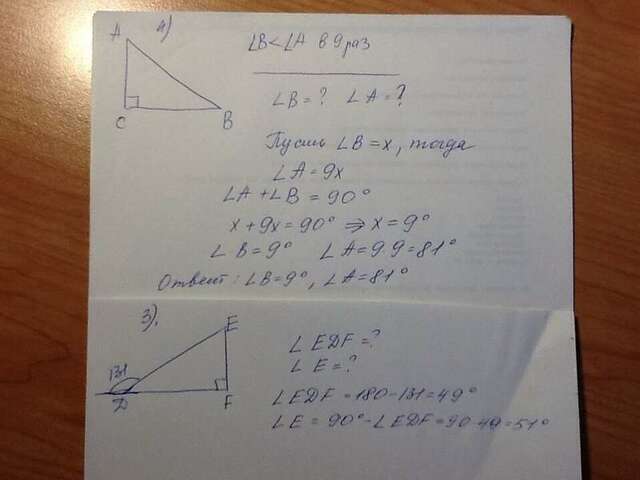 4)
A
C
B
∠B<∠A в 9 раз
∠B=? ∠A=?
Пусть ∠B=x, тогда
∠A=9x
∠A+∠B=90°
x+9x=90° ⇒ x=9°
∠B=9° ∠A=9·9=81°
Ответ: ∠B=9°, ∠A=81°
3).
E
131
D
F
∠EDF=?
∠E=?
∠EDF=180-131=49°
∠E=90°-∠EDF=90-49=51°